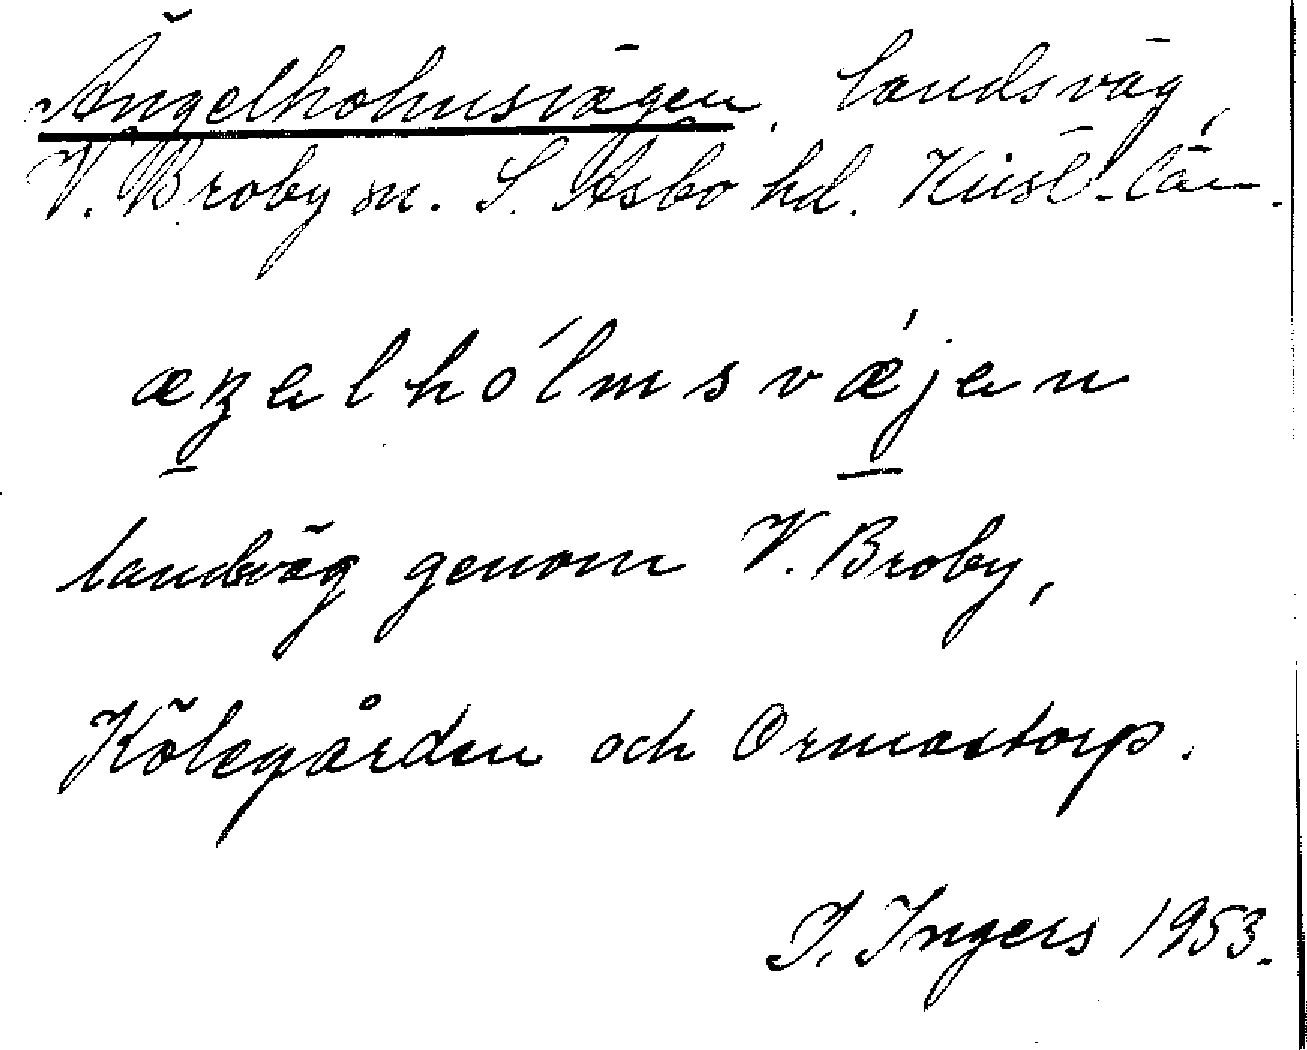 Ängelholmsvägen, landsväg,
V. Broby sn. S. Åsbo hd. Krist. län.
æŋəlhólmsvæ̀jən
landsväg genom V. Broby,
Kölegården och Ormastorp.
I. Ingers 1953.